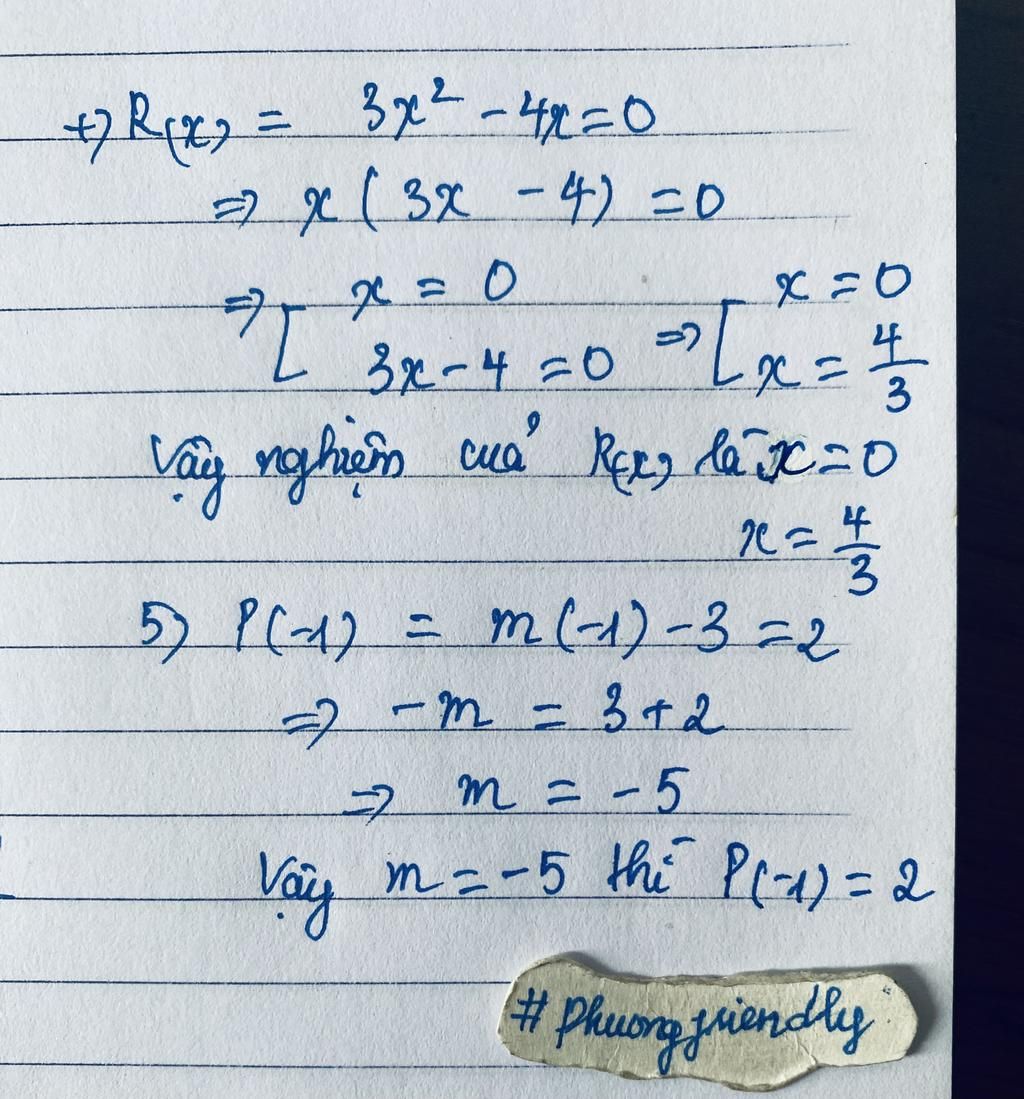 +) R(x) = 3x² - 4x = 0
=> x ( 3x - 4) = 0
=> [ x = 0 => [ x = 0
3x - 4 = 0 x = 4/3
Vậy nghiệm của R(x) là x = 0
x = 4/3
5) P(-1) = m(-1) - 3 = 2
=> -m = 3 + 2
=> m = -5
Vậy m = -5 thì P(-1) = 2
# phuongfriendly